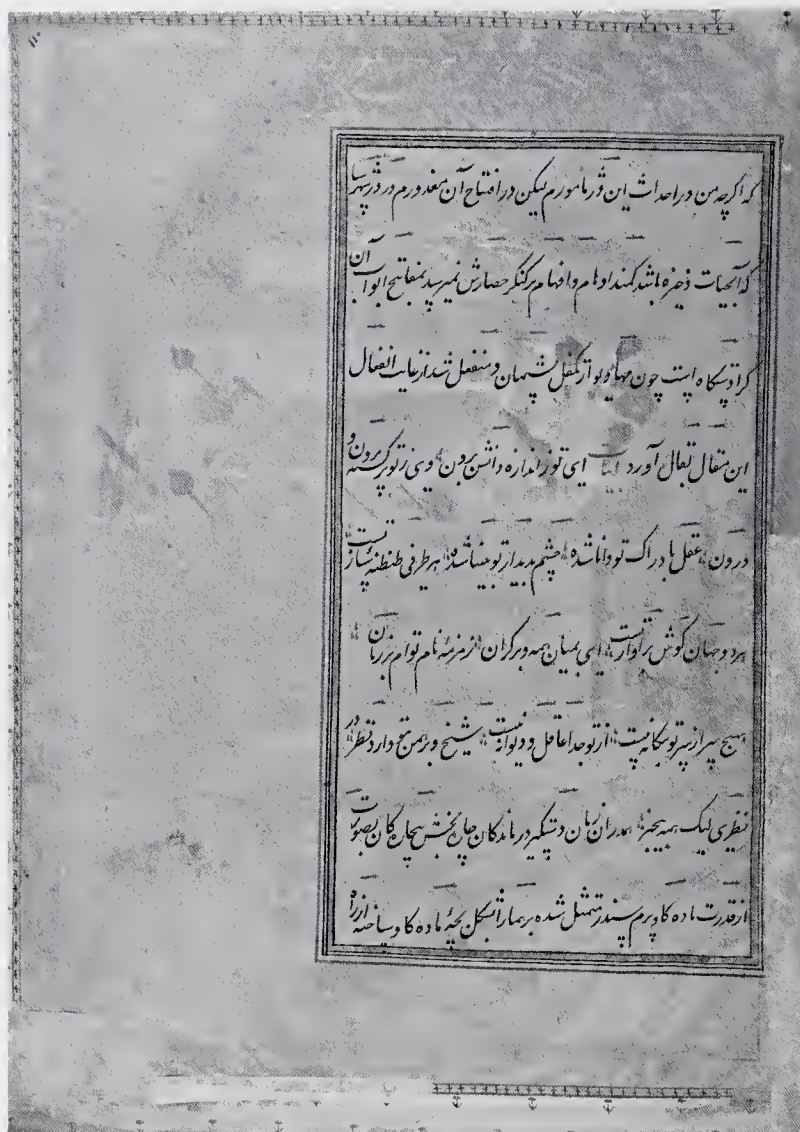 ۱۱۰
که اگرچه من در احداث این دژ مامورم لیکن در افتتاح آن معذورم در دژ
که آبحیات ذخیره باشد کمند اوهام و افهام بر کنگر حصارش نمیرسد بمفاتیح ابواب آن
کرا دستگاه است چون مهادیو از تکفل پشیمان و منفعل شد از غایت انفعال
این مقال تفال آورد ابیات ای تو ز اندازه دانش برون وی ز تو پر گشته برون و
درون عقل بادراک تو دانا شده چشم بدیدار تو بینا شده هر طرفی طنطنه ساز تست
هر دو جهان گوش بر آواز تست ای بمیان همه و بر کران زمزمه نام توام بر زبان
هیچ سر از سر تو بیگانه نیست از تو جدا عاقل و دیوانه نیست شیخ و برهمن بتو دارد نظر در
نظری لیک همه بیخبر همدران زمان دستگیر درماندگان چاره بخش بیچارگان بصورت
از قدرت ماده گاو پرم سندر متمثل شده برهما را بشکل بچه ماده گاو ساخته از راه